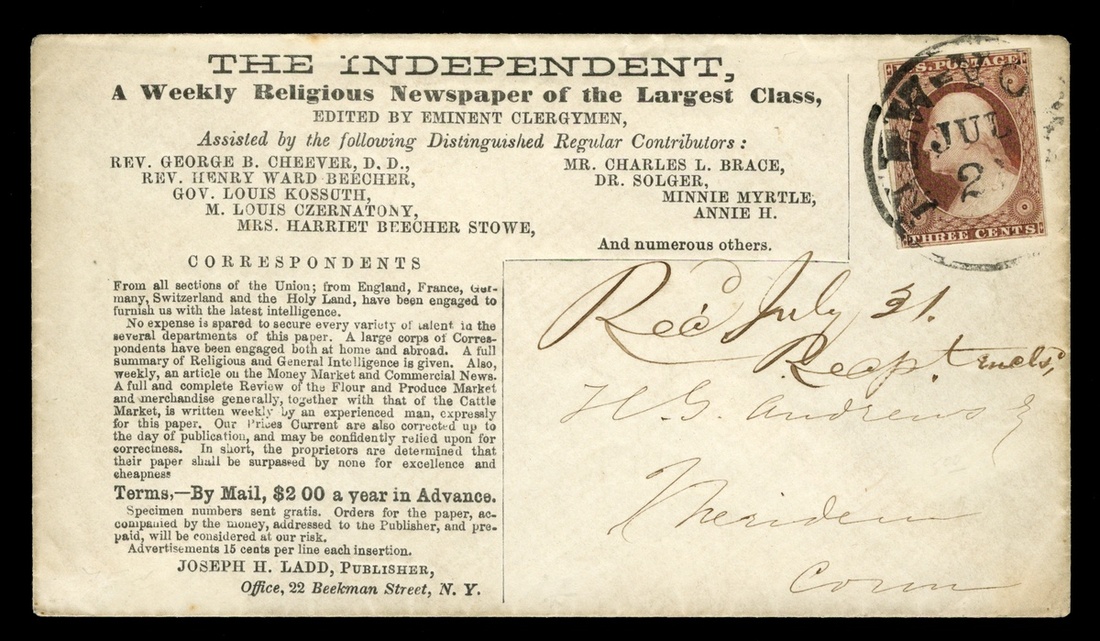 THE INDEPENDENT,
A Weekly Religious Newspaper of the Largest Class,
EDITED BY EMINENT CLERGYMEN,
Assisted by the following Distinguished Regular Contributors:
REV. GEORGE B. CHEEVER, D. D.,
REV. HENRY WARD BEECHER,
GOV. LOUIS KOSSUTH,
M. LOUIS CZERNATONY,
MRS. HARRIET BEECHER STOWE,
MR. CHARLES L. BRACE,
DR. SOLGER,
MINNIE MYRTLE,
ANNIE H.
And numerous others.
CORRESPONDENTS
From all sections of the Union; from England, France, Ger-
many, Switzerland and the Holy Land, have been engaged to
furnish us with the latest intelligence.
No expense is spared to secure every variety of talent in the
several departments of this paper. A large corps of Corres-
pondents have been engaged both at home and abroad. A full
summary of Religious and General Intelligence is given. Also,
weekly, an article on the Money Market and Commercial News.
A full and complete Review of the Flour and Produce Market
and merchandise generally, together with that of the Cattle
Market, is written weekly by an experienced man, expressly
for this paper. Our Prices Current are also corrected up to
the day of publication, and may be confidently relied upon for
correctness. In short, the proprietors are determined that
their paper shall be surpassed by none for excellence and
cheapness
Terms,—By Mail, $2 00 a year in Advance.
Specimen numbers sent gratis. Orders for the paper, ac-
companied by the money, addressed to the Publisher, and pre-
paid, will be considered at our risk.
Advertisements 15 cents per line each insertion.
JOSEPH H. LADD, PUBLISHER,
Office, 22 Beekman Street, N. Y.
U.S. POSTAGE
THREE CENTS
NEW
JUL
2
Rec'd July 31.
Recpt incls'd
H. G. Andrews
Meriden
Conn